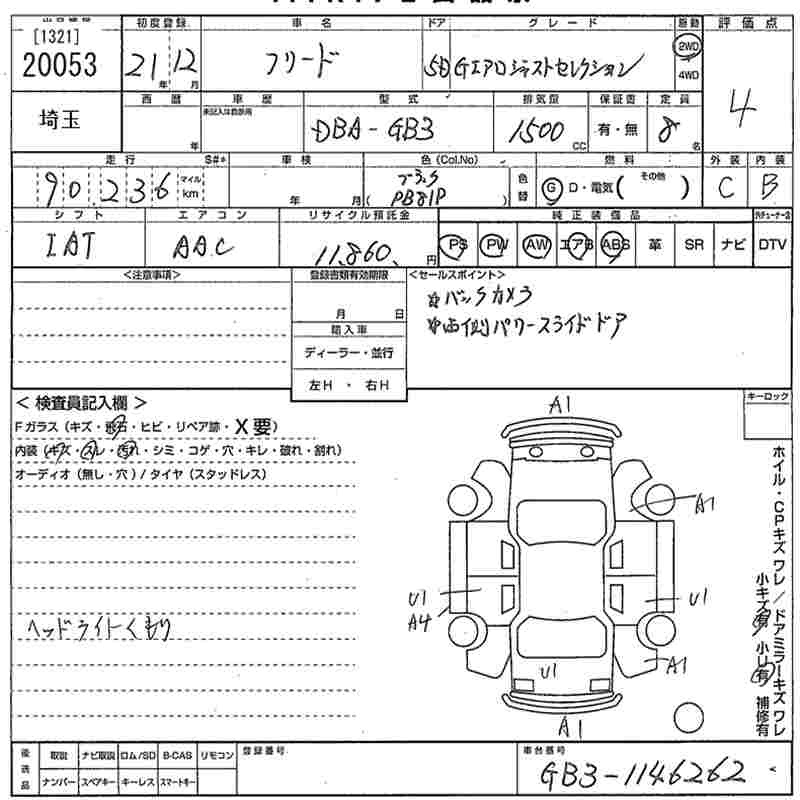 [1321]
20053
初度登録 車名 ドア グレード 駆動 評価点
21年 12月 フリード 5D Gエアロジャストセレクション 2WD 4WD 4
埼玉
西暦 車歴 型式 排気量 保証書 定員
年 未記入は自家用 DBA-GB3 1500cc 有・無 8名
走行 S#* 車検 色(Col.No) 燃料 外装 内装
90,236 マイル km 年 月 ブラック (PB81P) 色替 G D・電気( その他 ) C B
シフト エアコン リサイクル預託金 純正装備品
IAT AAC 11,860円 PS PW AW エアB ABS 革 SR ナビ DTV
<注意事項> 登録書類有効期限 <セールスポイント>
月 日
輸入車
ディーラー・並行
左H ・ 右H
☆バックカメラ
☆両側パワースライドドア
<検査員記入欄> キーロック
Fガラス(キズ・飛石・ヒビ・リペア跡・X要)
内装(キズ・スレ・汚れ・シミ・コゲ・穴・キレ・破れ・割れ)
オーディオ(無し・穴)/タイヤ(スタッドレス)
ヘッドライトくもり
A1
A1
U1
A4
U1
A1
U1
A1
ホイル・CPキズ ワレ/ドアミラーキズ ワレ
小キズ有 小U有 補修有
後送品 取説 ナビ取説 ロム/SD B-CAS リモコン 登録番号 車台番号
ナンバー スペアキー キーレス スマートキー GB3-1146262